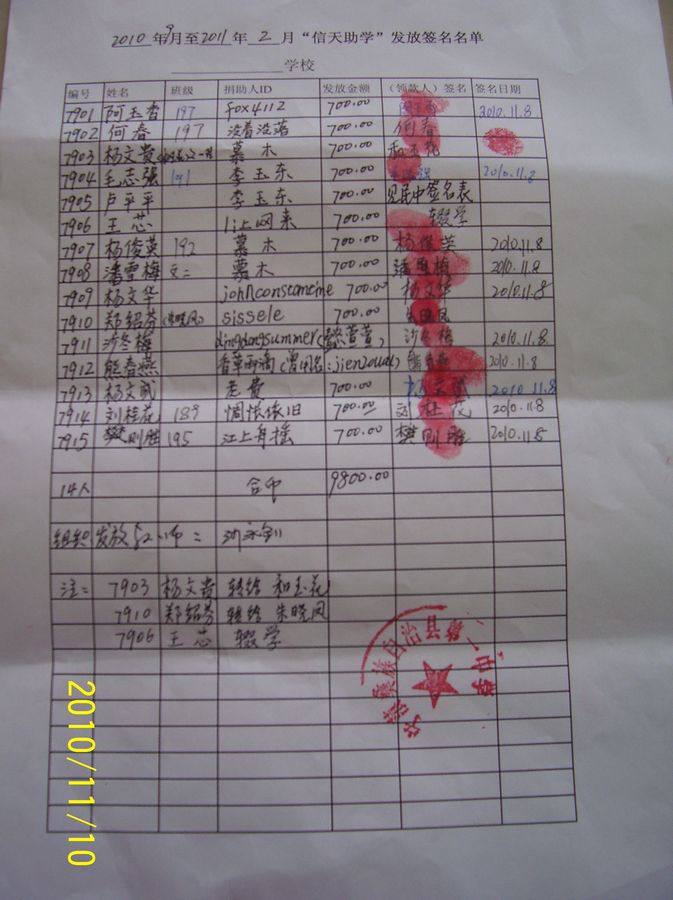 2010 年 9 月至 2011 年 2 月“信天助学”发放签名名单
学校
编号 姓名 班级 捐助人ID 发放金额 (领款人)签名 签名日期
7901 阿玉香 197 fox4112 700.00 2010.11.8
7902 何春 197 没着没落 700.00 何春
7903 杨文贵 慕木 700.00 和玉花
7904 毛志强 191 李玉东 700.00 2010.11.8
7905 卢平平 李玉东 700.00 见民中签名表
7906 王芯 li上网来 700.00 辍学
7907 杨俊英 192 慕木 700.00 杨俊英 2010.11.8
7908 潘雪梅 文二 慕木 700.00 潘雪梅 2010.11.8
7909 杨文华 johnconstantine 700.00 杨文华 2010.11.8
7910 郑绍芬 (朱晓凤) sissele 700.00 朱晓凤
7911 沙冬梅 dingdangsummer 700.00 沙冬梅 2010.11.8
7912 熊春燕 700.00 熊春燕 2010.11.8
7913 杨文斌 老贵 700.00 2010.11.8
7914 刘桂花 189 惆怅依旧 700.00 刘桂花 2010.11.8
7915 樊则胜 195 江上舟摇 700.00 樊则胜 2010.11.8
14人 合计 9800.00
组织发放老师:
注: 7903 杨文贵 转给 和玉花
7910 郑绍芬 转给 朱晓凤
7906 王芯 辍学
2010/11/10